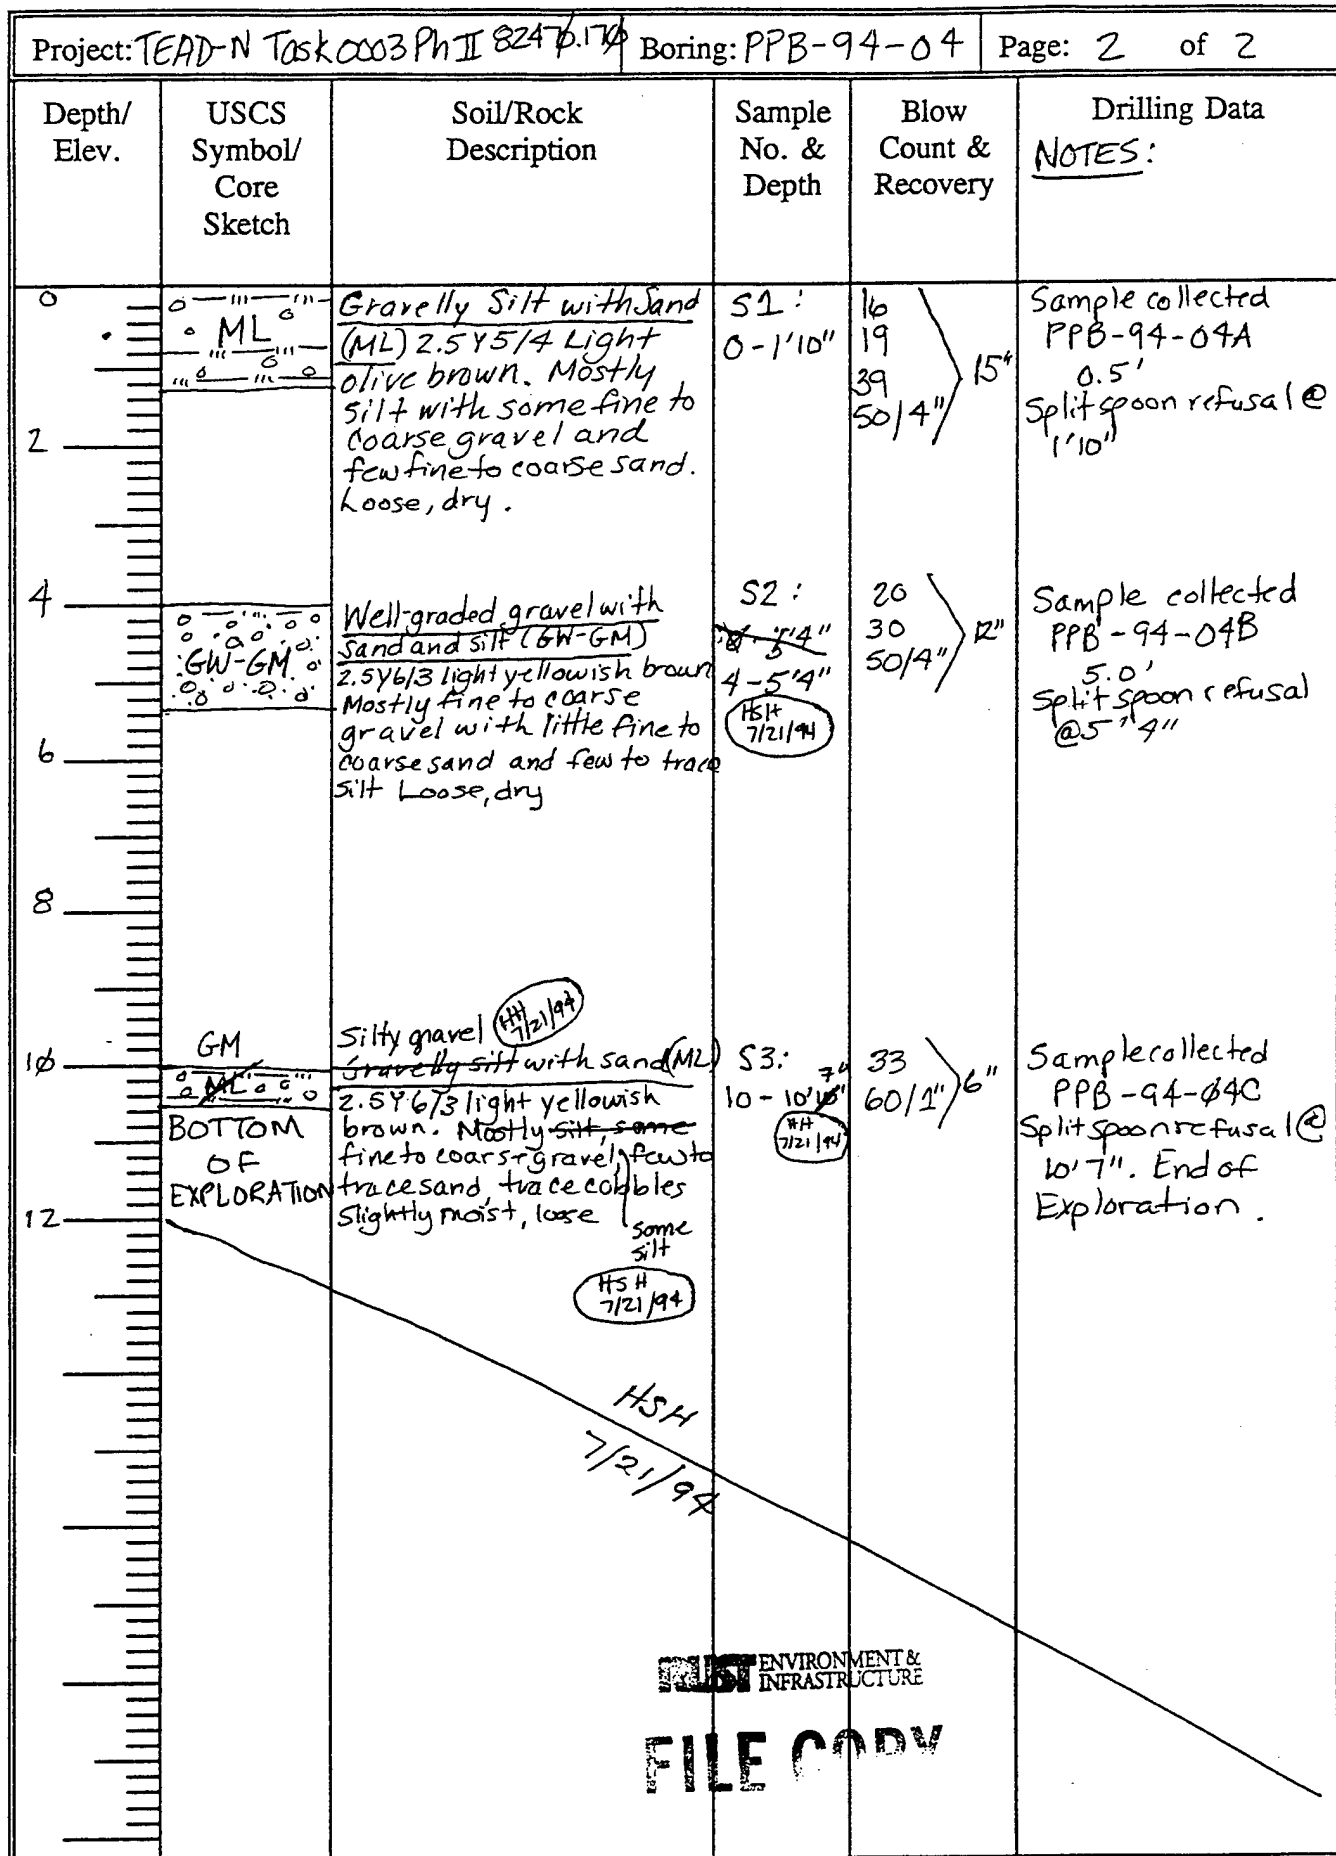 Project: TEAD-N Task 0003 Ph II 82470.170 Boring: PPB-94-04 Page: 2 of 2
Depth/
Elev.
USCS
Symbol/
Core
Sketch
Soil/Rock
Description
Sample
No. &
Depth
Blow
Count &
Recovery
Drilling Data
NOTES:
0
ML
Gravelly Silt with Sand
(ML) 2.5Y5/4 Light
olive brown. Mostly
silt with some fine to
coarse gravel and
few fine to coarse sand.
Loose, dry.
S1:
0-1'10"
16
19
39
50/4"
15"
Sample collected
PPB-94-04A
0.5'
Split spoon refusal @
1'10"
2
4
GW-GM
Well-graded gravel with
Sand and silt (GW-GM)
2.5Y6/3 light yellowish brown
Mostly fine to coarse
gravel with little fine to
coarse sand and few to trace
silt Loose, dry
S2:
4-5'4"
HSH
7/21/94
20
30
50/4"
12"
Sample collected
PPB-94-04B
5.0'
Split spoon refusal
@5'4"
6
8
10
GM
ML
BOTTOM
OF
EXPLORATION
Silty gravel HH 7/21/94
Gravelly silt with sand (ML)
2.5Y6/3 light yellowish
brown. Mostly silt, some
fine to coarse gravel, few to
trace sand, trace cobbles
Slightly moist, loose
some
silt
HSH
7/21/94
S3:
10-10' 7"
HH
7/21/94
33
60/1"
6"
Sample collected
PPB-94-04C
Split spoon refusal @
10'7". End of
Exploration.
12
HSH
7/21/94
RUST ENVIRONMENT &
INFRASTRUCTURE
FILE COPY